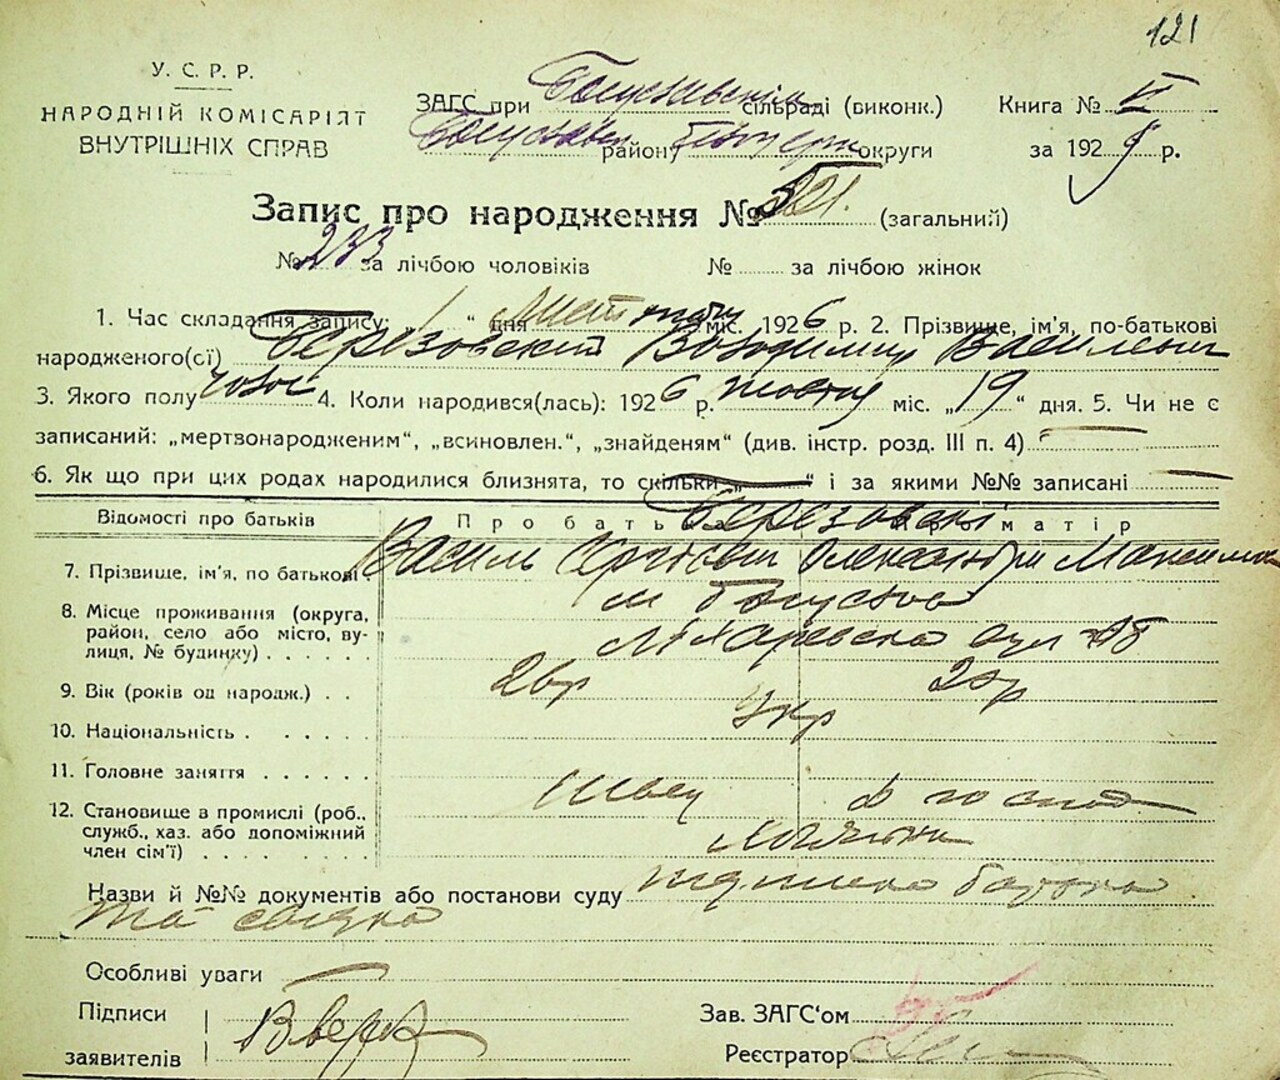 121
У. С. Р. Р.
НАРОДНІЙ КОМІСАРІЯТ
ВНУТРІШНІХ СПРАВ
ЗАГС при Богуславській сільраді (виконк.) Книга № II
Богуславськ району округи за 1926 р.
Запис про народження № 521. (загальний)
№ 233 за лічбою чоловіків № за лічбою жінок
1. Час складання запису: 1 " дня Листопаду міс. 1926 р. 2. Прізвище, ім'я, по-батькові
народженого(ої) Березовский Володимир Васильевич
3. Якого полу чолов 4. Коли народився(лась): 1926 р. жовтня міс. „19" дня. 5. Чи не є
записаний: „мертвонародженим", „всиновлен.", „знайденям" (див. інстр. розд. III п. 4)
6. Як що при цих родах народилися близнята, то скільки „ " і за якими №№ записані
Відомості про батьків Про батька Про матір
Березовські
7. Прізвище, ім'я, по батькові Василь Сергієвич Олександра Максимов
8. Місце проживання (округа, м Богуслав
район, село або місто, ву-
лиця, № будинку)
9. Вік (років од народж.) 26р 25р
10. Національність Укр
11. Головне заняття
Швец д господ
12. Становище в промислі (роб.,
служб., хаз. або допоміжний
член сім'ї)
Назви й №№ документів або постанови суду
та свідка
Особливі уваги
Підписи
заявителів В Бер
Зав. ЗАГС'ом
Реєстратор